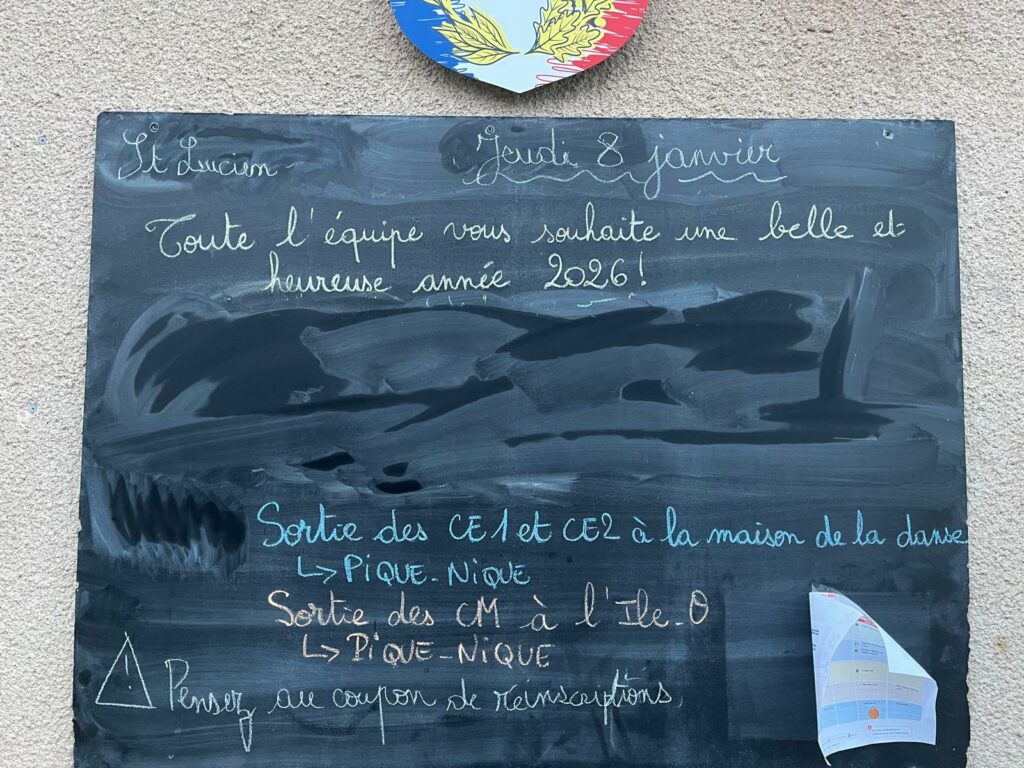 St Lucien
Jeudi 8 janvier
Toute l'équipe vous souhaite une belle et
heureuse année 2026!
Sortie des CE1 et CE2 à la maison de la danse
↳ PiQUE-NiQUE
Sortie des CM à l'Ile-O
↳ PiQUE-NiQUE
⚠ Pensez au coupon de réinscriptions.